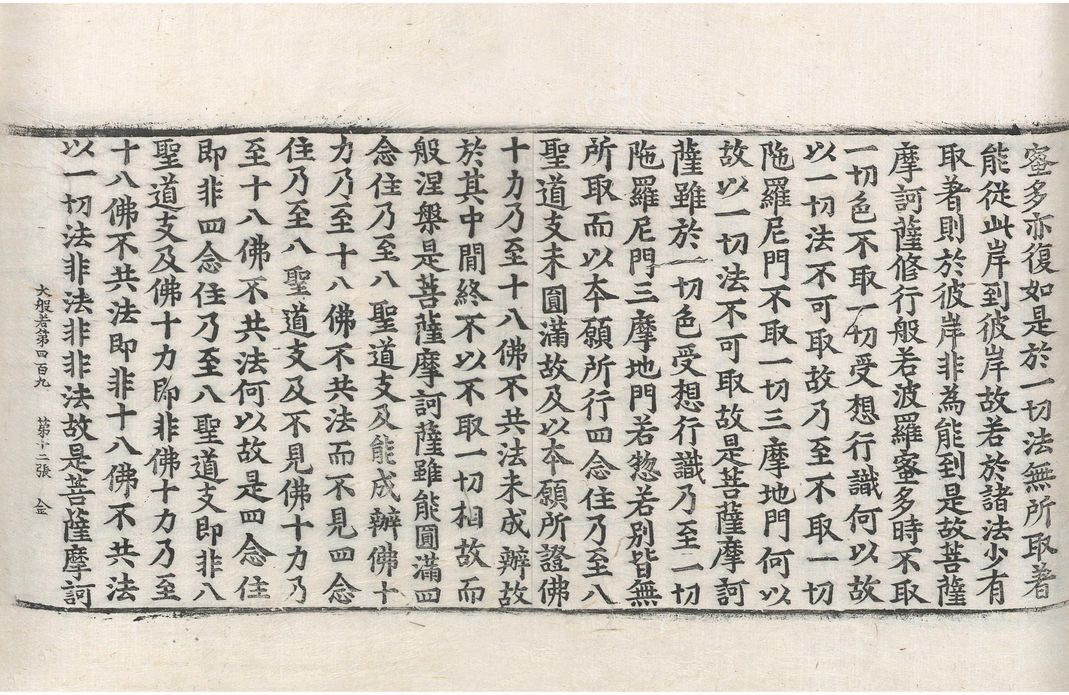 蜜多亦復如是於一切法無所取著
能從此岸到彼岸故若於諸法少有
取著則於彼岸非為能到是故菩薩
摩訶薩修行般若波羅蜜多時不取
一切色不取一切受想行識何以故
以一切法不可取故乃至不取一切
陁羅尼門不取一切三摩地門何以
故以一切法不可取故是菩薩摩訶
薩雖於一切色受想行識乃至一切
陁羅尼門三摩地門若惣若別皆無
所取而以本願所行四念住乃至八
聖道支未圓滿故及以本願所證佛
十力乃至十八佛不共法未成辦故
於其中閒終不以不取一切相故而
般涅槃是菩薩摩訶薩雖能圓滿四
念住乃至八聖道支及能成辦佛十
力乃至十八佛不共法而不見四念
住乃至八聖道支及不見佛十力乃
至十八佛不共法何以故是四念住
即非四念住乃至八聖道支即非八
聖道支及佛十力即非佛十力乃至
十八佛不共法即非十八佛不共法
以一切法非法非非法故是菩薩摩訶
大般若第四百九 第十二張 金